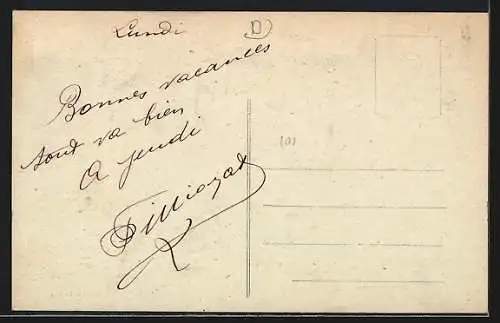 Lundi
D
Bonnes vacances
tout va bien
A jeudi
Filliozat
101